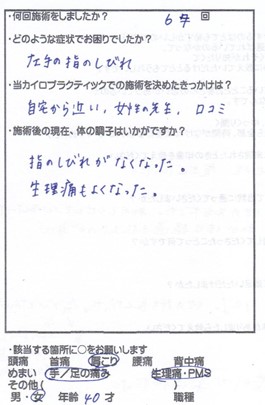 ・何回施術をしましたか? 6〜7 回
・どのような症状でお困りでしたか?
左手の指のしびれ
・当カイロプラクティックでの施術を決めたきっかけは?
自宅から近い、女性の先生、口コミ
・施術後の現在、体の調子はいかがですか?
指のしびれがなくなった。
生理痛もよくなった。
・該当する箇所に○をお願いします
頭痛 首痛 肩こり 腰痛 背中痛
めまい 手/足の痛み 生理痛・PMS
その他( )
男・女 年齢 40 才 職種